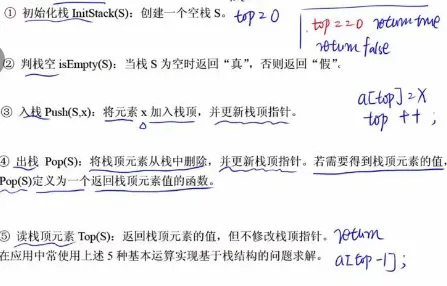 ① 初始化栈 InitStack(S)：创建一个空栈 S。 top=0
top==0 return true
return false
② 判栈空 isEmpty(S)：当栈 S 为空时返回“真”，否则返回“假”。
③ 入栈 Push(S,x)：将元素 x 加入栈顶，并更新栈顶指针。
a[top]=x
top ++ ;
④ 出栈 Pop(S)：将栈顶元素从栈中删除，并更新栈顶指针。若需要得到栈顶元素的值，
Pop(S)定义为一个返回栈顶元素值的函数。
⑤ 读栈顶元素 Top(S)：返回栈顶元素的值，但不修改栈顶指针。 return
在应用中常使用上述 5 种基本运算实现基于栈结构的问题求解。 a[top-1];